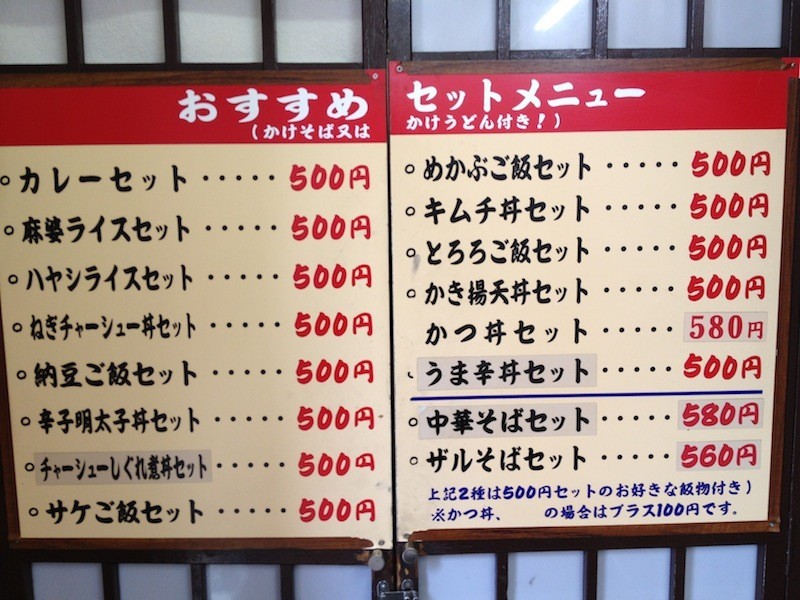 おすすめ
(かけそば又は
。カレーセット・・・・・500円
。麻婆ライスセット・・・・・500円
。ハヤシライスセット・・・・・500円
。ねぎチャーシュー丼セット・・・・・500円
。納豆ご飯セット・・・・・500円
。辛子明太子丼セット・・・・・500円
。チャーシューしぐれ煮丼セット・・・・・500円
。サケご飯セット・・・・・500円
セットメニュー
かけうどん付き!)
。めかぶご飯セット・・・・・500円
。キムチ丼セット・・・・・500円
。とろろご飯セット・・・・・500円
。かき揚天丼セット・・・・・500円
かつ丼セット・・・・・580円
うま辛丼セット・・・・・500円
。中華そばセット・・・・・580円
。ザルそばセット・・・・・560円
上記2種は500円セットのお好きな飯物付き)
※かつ丼、 の場合はプラス100円です。